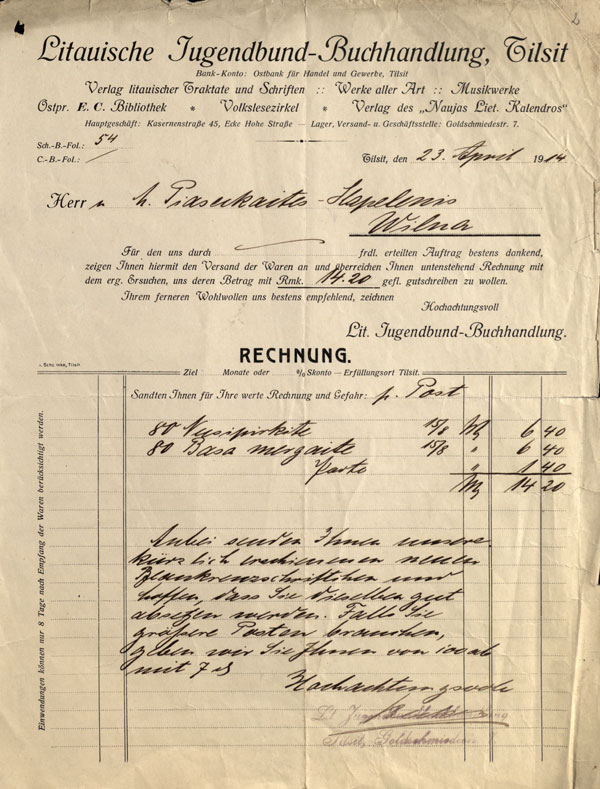 2
Litauische Jugendbund-Buchhandlung, Tilsit
Bank-Konto: Ostbank für Handel und Gewerbe, Tilsit
Verlag litauischer Traktate und Schriften :: Werke aller Art :: Musikwerke
Ostpr. E. C. Bibliothek * Volkslesezirkel * Verlag des "Naujas Liet. Kalendros"
Hauptgeschäft: Kasernenstraße 45, Ecke Hohe Straße — Lager, Versand- u. Geschäftsstelle: Goldschmiedestr. 7.
Sch.-B.-Fol.: 54
C.-B.-Fol.: /
Tilsit, den 23. April 1914
Herrn
Wilna
Für den uns durch frdl. erteilten Auftrag bestens dankend,
zeigen Ihnen hiermit den Versand der Waren an und überreichen Ihnen untenstehend Rechnung mit
dem erg. Ersuchen, uns deren Betrag mit Rmk. 14.20 gefl. gutschreiben zu wollen.
Ihrem ferneren Wohlwollen uns bestens empfehlend, zeichnen
Hochachtungsvoll
Lit. Jugendbund-Buchhandlung.
RECHNUNG.
Tilsit.
Ziel Monate oder % Skonto — Erfüllungsort Tilsit.
Sandten Ihnen für Ihre werte Rechnung und Gefahr: p. Post
80 Nusipirkite 15/8 M 6 40
80 Basa mergaite 15/8 " 6 40
Porto " 1 40
M 14 20
Anbei senden Ihnen unsere
kürzlich erschienenen neuen
Blaukreuzschriftchen und
hoffen, dass Sie dieselben gut
absetzen werden. Falls Sie
grössere Posten brauchen,
geben wir Sie Ihnen von 100 ab
mit 7 d
Hochachtungsvoll
Tilsit, Goldschmiedestr.
Einwendungen können nur 8 Tage nach Empfang der Waren berücksichtigt werden.